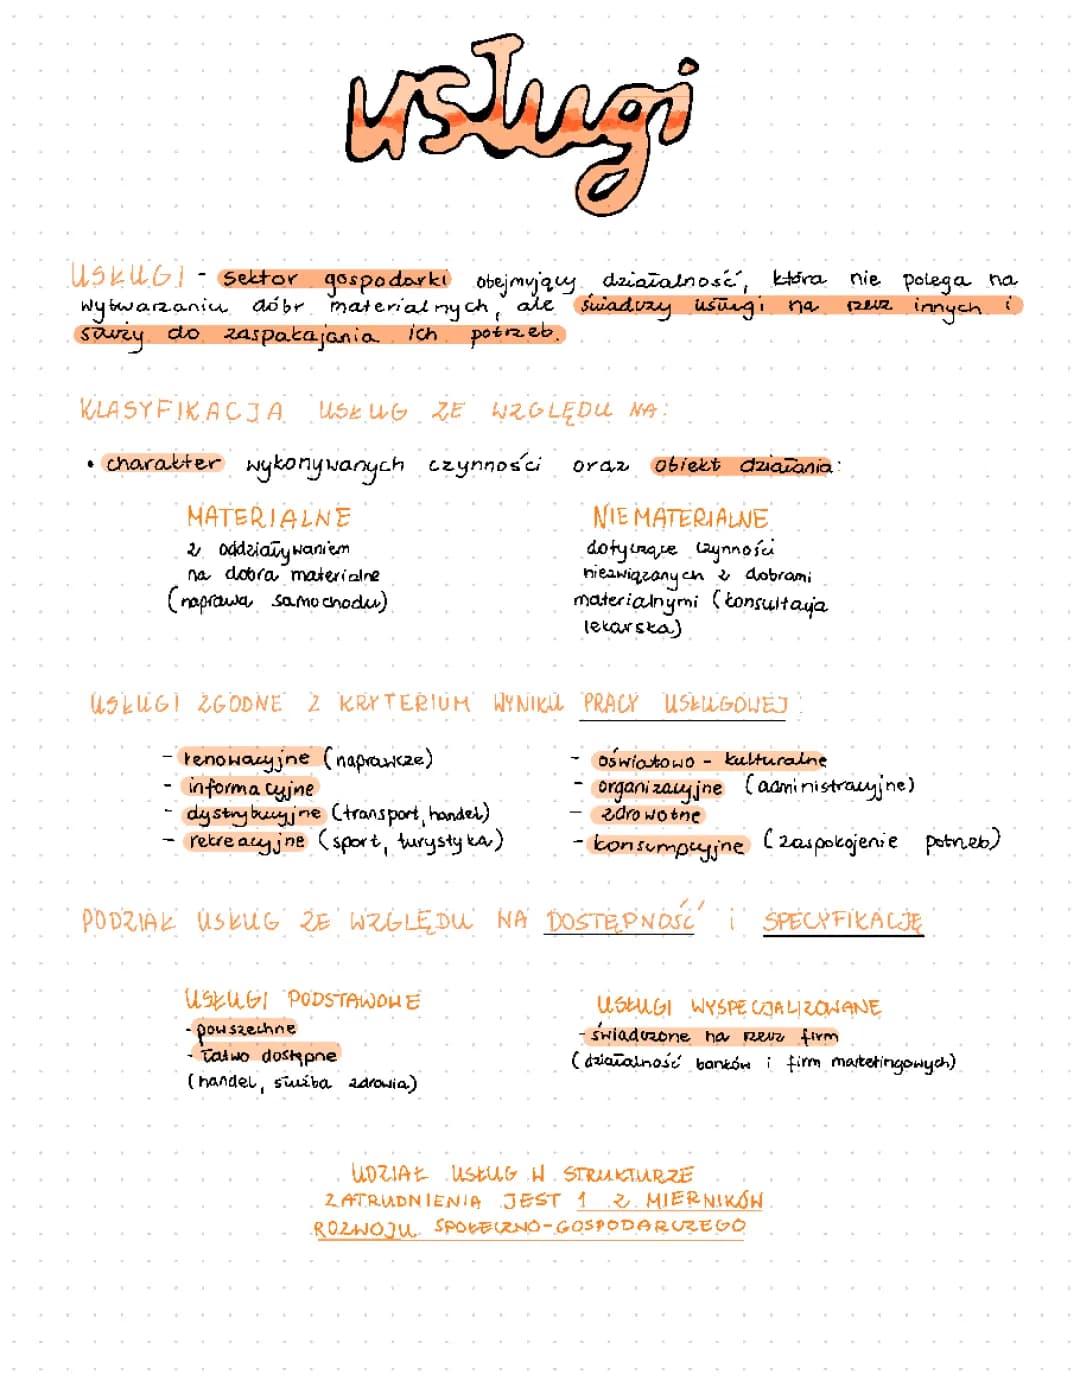 usługi
USŁUGI - sektor gospodarki obejmujący działalność, która nie polega na
wytwarzaniu dóbr materialnych, ale świadczy usługi na rzecz innych i
służy do zaspakajania ich potrzeb.
KLASYFIKACJA USŁUG ZE WZGLĘDU NA:
• charakter wykonywanych czynności oraz obiekt działania:
MATERIALNE
z oddziaływaniem
na dobra materialne
(naprawa samochodu)
NIEMATERIALNE
dotyczące czynności
niezwiązanych z dobrami
materialnymi (konsultacja
lekarska)
USŁUGI ZGODNE Z KRYTERIUM WYNIKU PRACY USŁUGOWEJ:
- renowacyjne (naprawcze)
- informacyjne
- dystrybucyjne (transport, handel)
- rekreacyjne (sport, turystyka)
- oświatowo - kulturalne
- organizacyjne (administracyjne)
- zdrowotne
- konsumpcyjne (zaspokojenie potrzeb)
PODZIAŁ USŁUG ZE WZGLĘDU NA DOSTĘPNOŚĆ i SPECYFIKACJĘ
USŁUGI PODSTAWOWE
- powszechne
- łatwo dostępne
(handel, służba zdrowia)
USŁUGI WYSPECJALIZOWANE
- świadczone na rzecz firm
(działalność banków i firm marketingowych)
UDZIAŁ USŁUG W STRUKTURZE
ZATRUDNIENIA JEST 1 Z MIERNIKÓW
ROZWOJU SPOŁECZNO-GOSPODARCZEGO